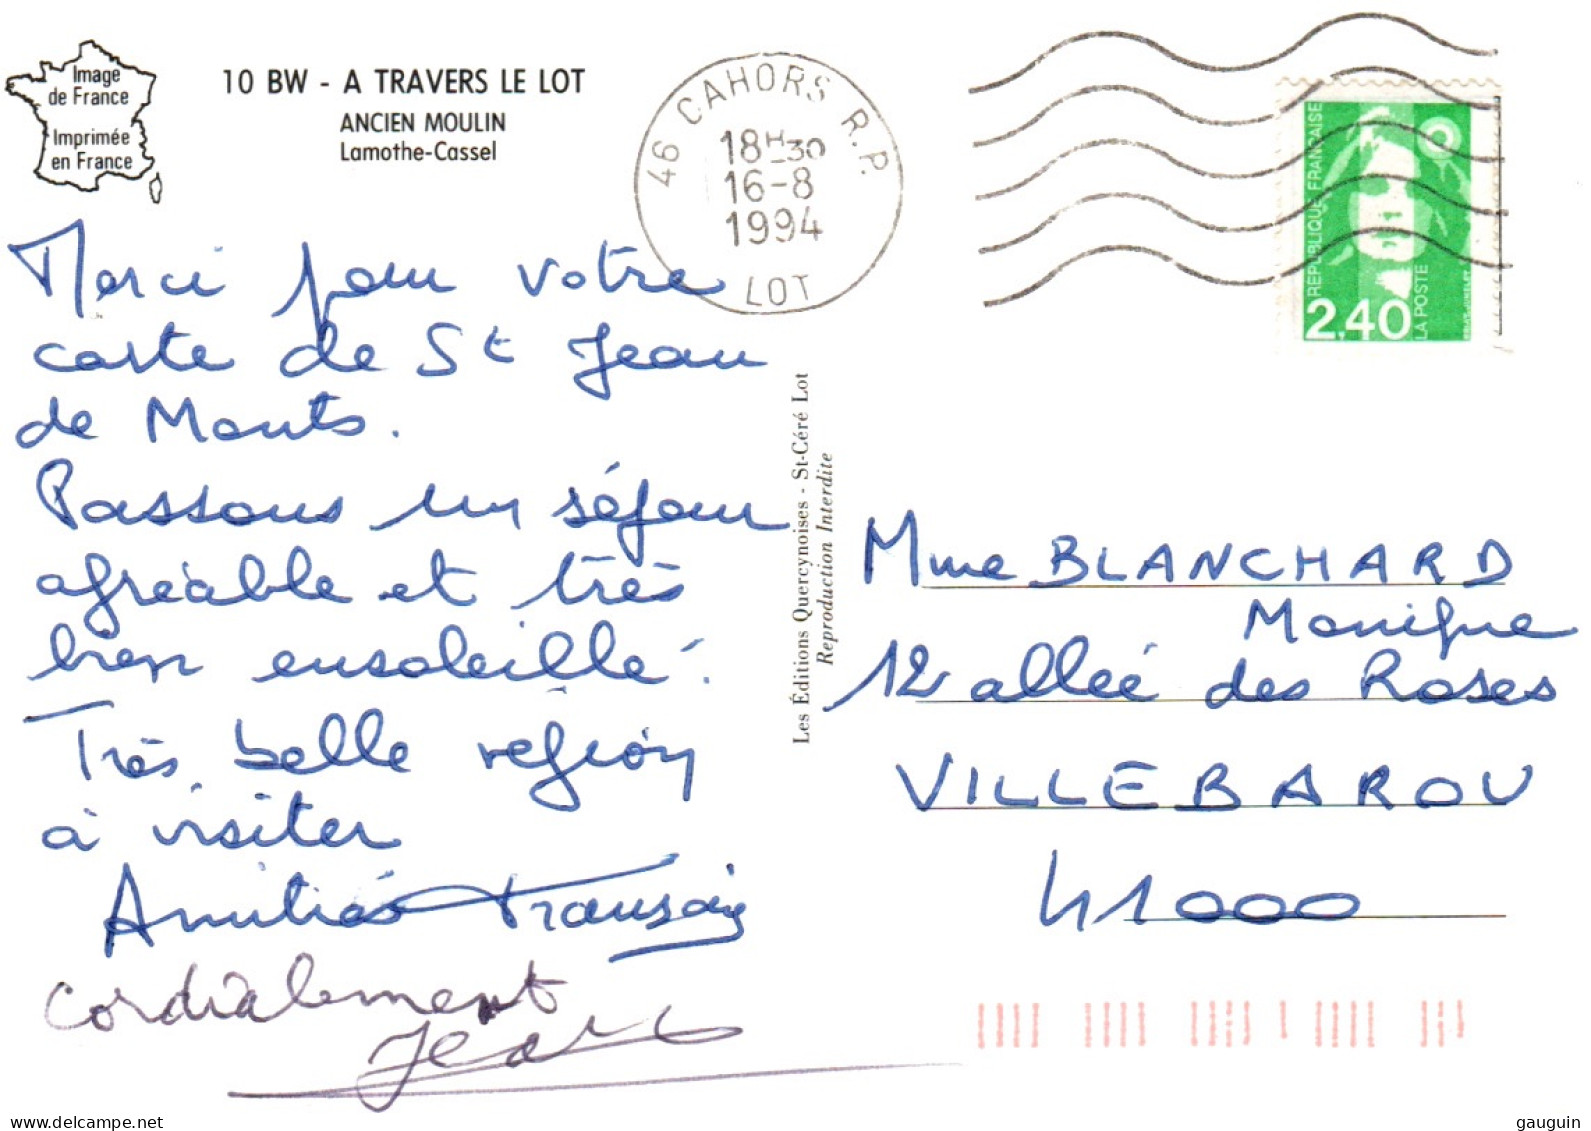 Image
de France
Imprimée
en France
10 BW - A TRAVERS LE LOT
ANCIEN MOULIN
Lamothe-Cassel
46 CAHORS R.P.
18H30
16-8
1994
LOT
REPUBLIQUE FRANÇAISE
LA POSTE
2,40
Merci pour votre
carte de St Jean
de Monts.
Passons un séjour
agréable et très
bien ensoleillé.
Très belle région
à visiter
Amitiés
Cordialement
Jean
Les Éditions Quercynoises - St-Céré Lot
Reproduction Interdite
Mme BLANCHARD
Monique
12 allée des Roses
VILLEBAROU
41000
www.delcampe.net
gauguin